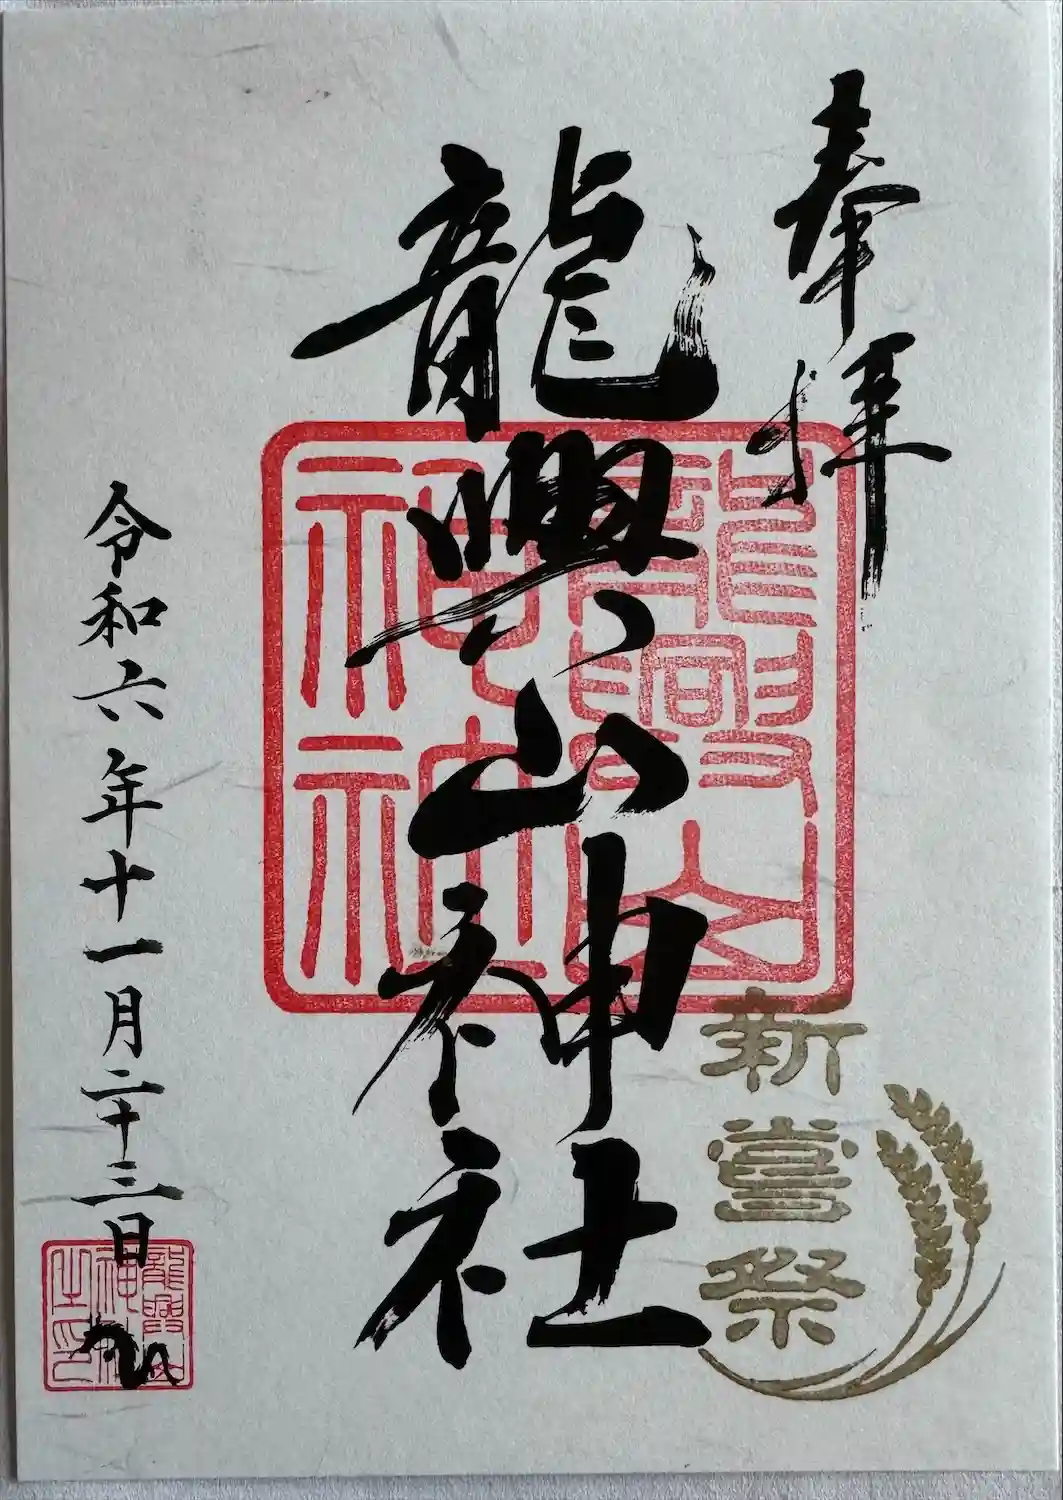 奉拝
龍興山神社
龍興山神社
新嘗祭
令和六年十一月二十三日